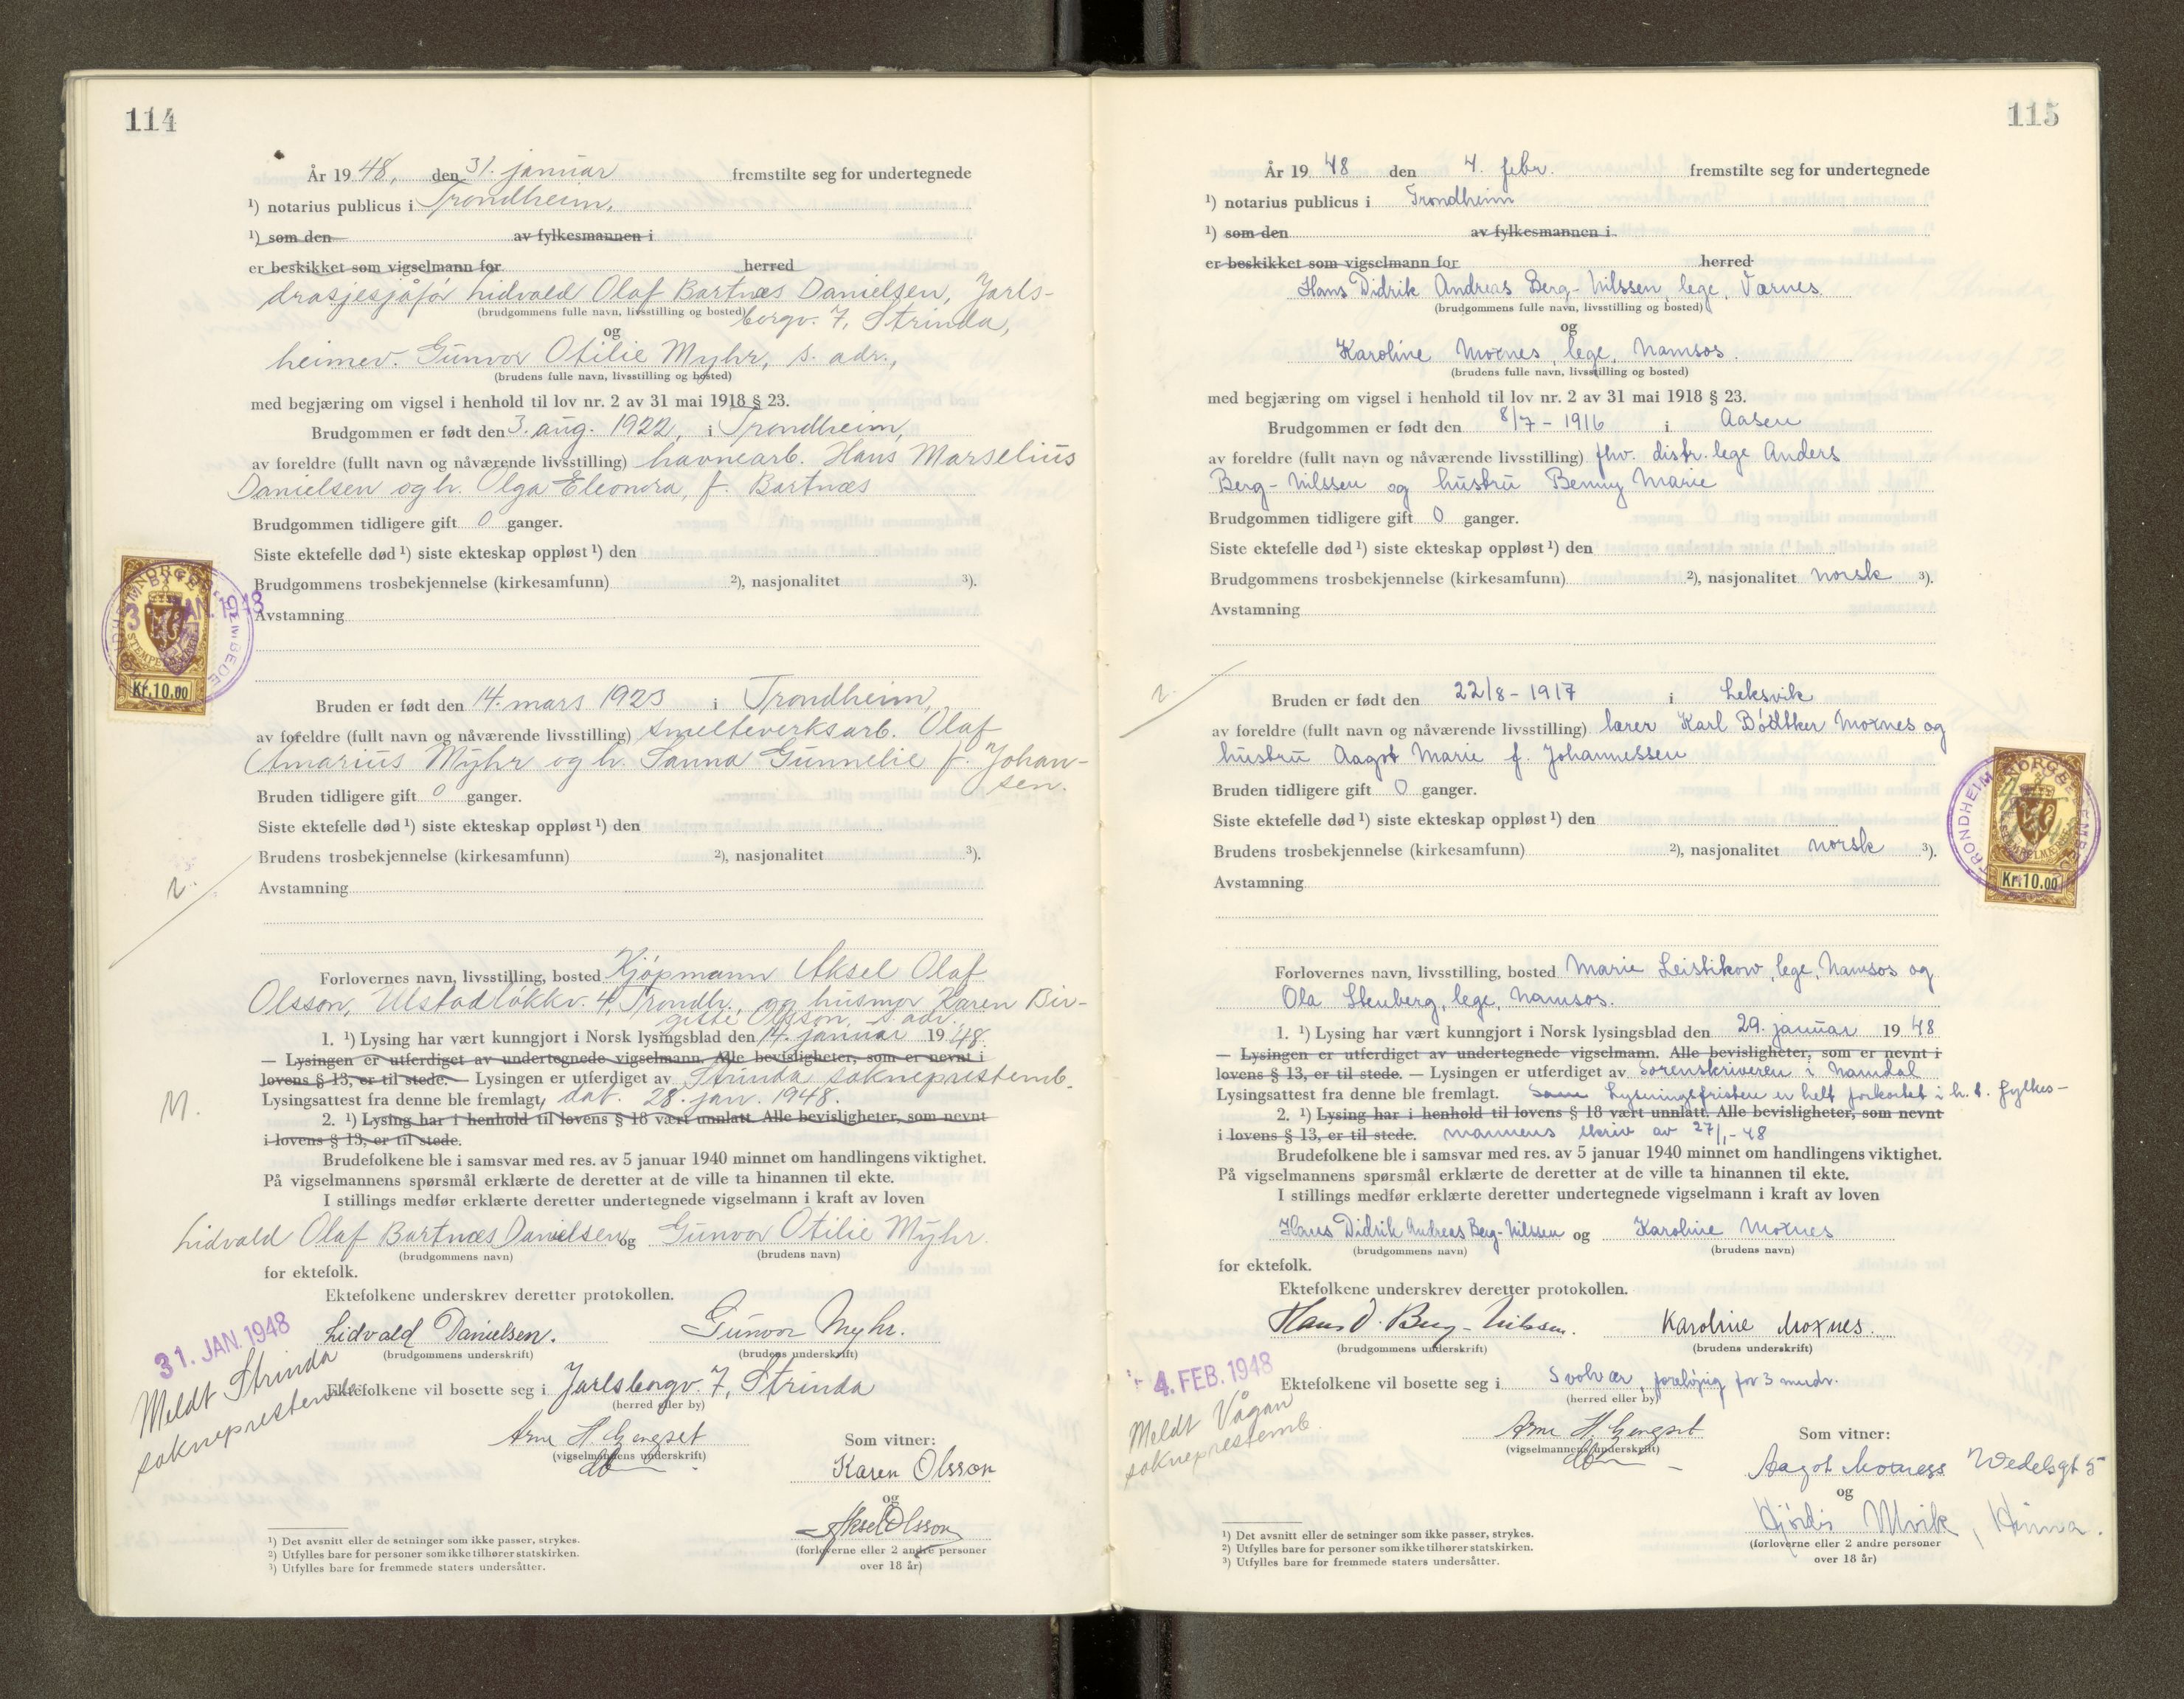 114
År 1948, den 31. januar fremstilte seg for undertegnede
¹) notarius publicus i Trondheim,
¹) som den av fylkesmannen i
er beskikket som vigselmann for herred
drosjesjåfør Lidvald Olaf Bartnæs Danielsen, Jarls-
(brudgommens fulle navn, livsstilling og bosted) bergv. 7, Strinda,
og
heimev. Gunvor Otilie Myhr, s. adr.,
(brudens fulle navn, livsstilling og bosted)
med begjæring om vigsel i henhold til lov nr. 2 av 31 mai 1918 § 23.
Brudgommen er født den 3. aug. 1922, i Trondheim,
av foreldre (fullt navn og nåværende livsstilling) havnearb. Hans Marselius
Danielsen og h. Olga Eleonora, f. Bartnæs
Brudgommen tidligere gift 0 ganger.
Siste ektefelle død ¹) siste ekteskap oppløst ¹) den
Brudgommens trosbekjennelse (kirkesamfunn) ²), nasjonalitet ³).
Avstamning
Kr.10.00
Bruden er født den 14. mars 1923 i Trondheim,
av foreldre (fullt navn og nåværende livsstilling) smelteverksarb. Olaf
Amarius Myhr og h. Sanna Gunnelie f. Johan-
sen.
Bruden tidligere gift 0 ganger.
Siste ektefelle død ¹) siste ekteskap oppløst ¹) den
Brudens trosbekjennelse (kirkesamfunn) ²), nasjonalitet ³).
Avstamning
Forlovernes navn, livsstilling, bosted Kjøpmann Aksel Olaf
Olsson, Ulstadløkkv. 4, Trondh., og husmor Karen Bir-
gitte Olsson, s. adr.
1. ¹) Lysing har vært kunngjort i Norsk lysingsblad den 14. januar 1948.
— Lysingen er utferdiget av undertegnede vigselmann. Alle bevisligheter, som er nevnt i
lovens § 13, er til stede. — Lysingen er utferdiget av Strinda sokneprestemb.
Lysingsattest fra denne ble fremlagt, dat. 28. jan. 1948.
M.
2. ¹) Lysing har i henhold til lovens § 18 vært unnlatt. Alle bevisligheter, som nevnt
i lovens § 13, er til stede.
Brudefolkene ble i samsvar med res. av 5 januar 1940 minnet om handlingens viktighet.
På vigselmannens spørsmål erklærte de deretter at de ville ta hinannen til ekte.
I stillings medfør erklærte deretter undertegnede vigselmann i kraft av loven
Lidvald Olaf Bartnæs Danielsen og Gunvor Otilie Myhr.
(brudgommens navn) (brudens navn)
for ektefolk.
Ektefolkene underskrev deretter protokollen.
31. JAN. 1948
Lidvald Danielsen. Gunvor Myhr.
(brudgommens underskrift) (brudens underskrift)
Meldt Strinda
sokneprestemb.
Ektefolkene vil bosette seg i Jarlsbergv. 7, Strinda
(herred eller by)
Arne H. Gengset Som vitner:
(vigselmannens underskrift)
Karen Olsson
og
Aksel Olsson
(forloverne eller 2 andre personer
over 18 år)
¹) Det avsnitt eller de setninger som ikke passer, strykes.
²) Utfylles bare for personer som ikke tilhører statskirken.
³) Utfylles bare for fremmede staters undersåtter.
115
År 1948 den 4. febr. fremstilte seg for undertegnede
¹) notarius publicus i Trondheim
¹) som den av fylkesmannen i
er beskikket som vigselmann for herred
Hans Didrik Andreas Berg-Nilssen, lege, Værnes
(brudgommens fulle navn, livsstilling og bosted)
og
Karoline Moxnes, lege, Namsos.
(brudens fulle navn, livsstilling og bosted)
med begjæring om vigsel i henhold til lov nr. 2 av 31 mai 1918 § 23.
Brudgommen er født den 8/7 - 1916 i Aasen
av foreldre (fullt navn og nåværende livsstilling) fhv. distr. lege Anders
Berg-Nilssen og hustru Benny Marie
Brudgommen tidligere gift 0 ganger.
Siste ektefelle død ¹) siste ekteskap oppløst ¹) den
Brudgommens trosbekjennelse (kirkesamfunn) ²), nasjonalitet norsk ³).
Avstamning
Bruden er født den 22/8 - 1917 i Leksvik
av foreldre (fullt navn og nåværende livsstilling) lærer Karl Bødtker Moxnes og
hustru Aagot Marie f. Johannessen
Bruden tidligere gift 0 ganger.
Siste ektefelle død ¹) siste ekteskap oppløst ¹) den
Brudens trosbekjennelse (kirkesamfunn) ²), nasjonalitet norsk ³).
Avstamning
Kr.10.00
Forlovernes navn, livsstilling, bosted Marie Leistikow, lege, Namsos og
Ola Stenberg, lege, Namsos.
1. ¹) Lysing har vært kunngjort i Norsk lysingsblad den 29. januar 1948
— Lysingen er utferdiget av undertegnede vigselmann. Alle bevisligheter, som er nevnt i
lovens § 13, er til stede. — Lysingen er utferdiget av sorenskriveren i Namdal
Lysingsattest fra denne ble fremlagt. Lysningsfristen er helt forkortet i h. t. fylkes-
2. ¹) Lysing har i henhold til lovens § 18 vært unnlatt. Alle bevisligheter, som nevnt
i lovens § 13, er til stede. mannens skriv av 27/1-48
Brudefolkene ble i samsvar med res. av 5 januar 1940 minnet om handlingens viktighet.
På vigselmannens spørsmål erklærte de deretter at de ville ta hinannen til ekte.
I stillings medfør erklærte deretter undertegnede vigselmann i kraft av loven
Hans Didrik Andreas Berg-Nilssen og Karoline Moxnes
(brudgommens navn) (brudens navn)
for ektefolk.
Ektefolkene underskrev deretter protokollen.
Hans D. Berg-Nilssen. Karoline Moxnes.
(brudgommens underskrift) (brudens underskrift)
4. FEB. 1948
Ektefolkene vil bosette seg i Svolvær, foreløpig for 3 mndr.
(herred eller by)
Meldt Vågan
sokneprestemb.
Arne H. Gengset Som vitner:
(vigselmannens underskrift)
Aagot Moxness Wedelsgt 5
og
Hjørdis Ulvik, Hinna.
(forloverne eller 2 andre personer
over 18 år)
¹) Det avsnitt eller de setninger som ikke passer, strykes.
²) Utfylles bare for personer som ikke tilhører statskirken.
³) Utfylles bare for fremmede staters undersåtter.